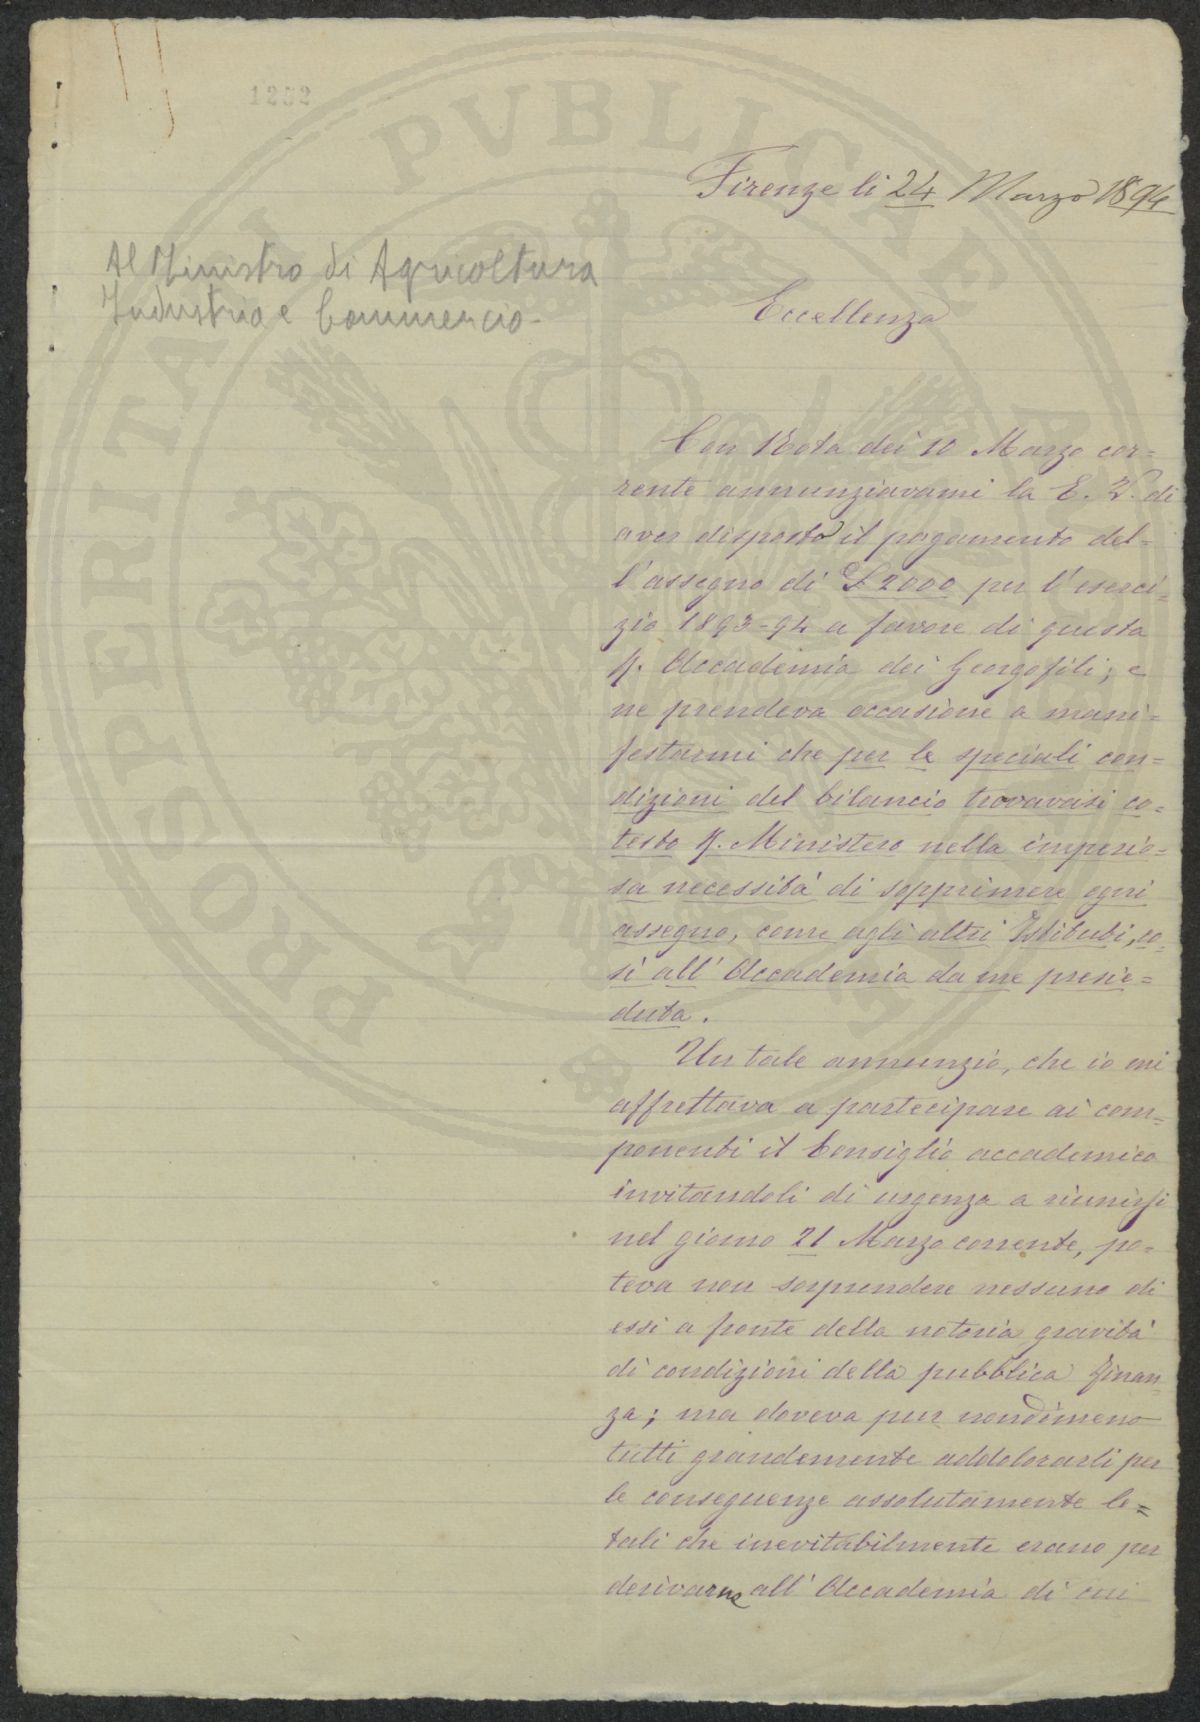 1252
PROSPERITATI PUBLICAE AUCTAE
Firenze li 24 Marzo 1894
Al Ministro di Agricoltura
Industria e Commercio-
Eccellenza
Con Nota dei 10 Marzo cor=
rente annunziavami la E. V. di
aver disposto il pagamento del=
l'assegno di £ 2000 per l'eserci=
zio 1893-94 a favore di questa
R. Accademia dei Georgofili; e
ne prendeva occasione a mani=
festarmi che per le speciali con=
dizioni del bilancio trovavasi co=
testo R. Ministero nella imperio=
sa necessità di sopprimere ogni
assegno, come agli altri Istituti, co=
sì all' Accademia da me presie=
duta.
Un tale annunzio, che io mi
affrettava a partecipare ai com=
ponenti il Consiglio accademico
invitandoli di urgenza a riunirsi
nel giorno 21 Marzo corrente, po=
teva non sorprendere nessuno di
essi a fronte della notoria gravità
di condizioni della pubblica finan=
za; ma doveva pur nondimeno
tutti grandemente addolorarli per
le conseguenze assolutamente le=
tali che inevitabilmente erano per
derivarne all' Accademia di cui